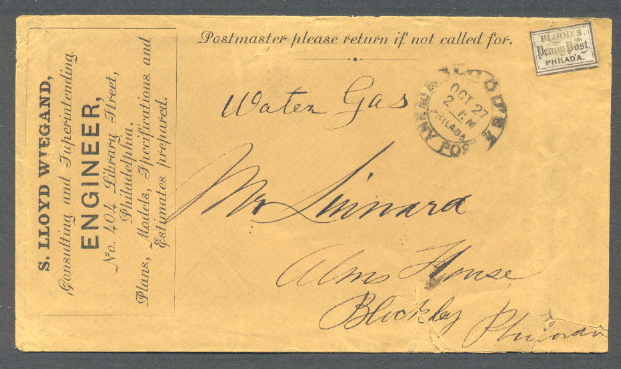 Postmaster please return if not called for.
BLOOD'S
Penny Post,
PHILAD'A.
S. LLOYD WIEGAND,
Consulting and Superintending
ENGINEER,
No. 404 Library Street,
Philadelphia.
Plans, Models, Specifications and
Estimates prepared.
BLOOD'S
OCT 27
2 P.M
PHILADA
PENNY POST
Water Gas
Mr Linnard
Alms House
Blockley Philada